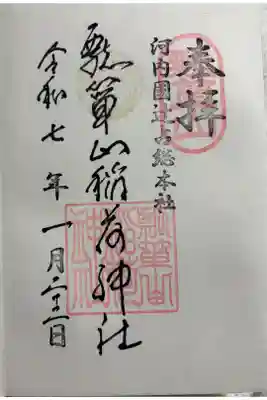 奉拝
河内國辻占総本社
瓢箪山稲荷神社
令和七年一月二十二日